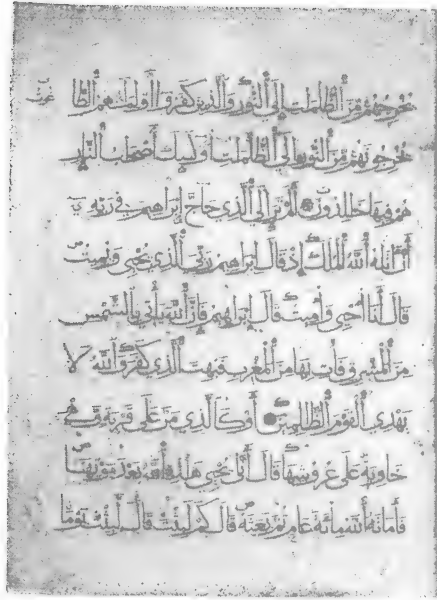 يُخْرِجُهُمْ مِنَ ٱلظُّلُمَاتِ إِلَى ٱلنُّورِ وَٱلَّذِينَ كَفَرُوا أَوْلِيَاؤُهُمُ ٱلطَّاغُوتُ
يُخْرِجُونَهُمْ مِنَ ٱلنُّورِ إِلَى ٱلظُّلُمَاتِ أُولَٰئِكَ أَصْحَابُ ٱلنَّارِ
هُمْ فِيهَا خَالِدُونَ أَلَمْ تَرَ إِلَى ٱلَّذِي حَاجَّ إِبْرَاهِيمَ فِي رَبِّهِ
أَنْ آتَاهُ ٱللَّهُ ٱلْمُلْكَ إِذْ قَالَ إِبْرَاهِيمُ رَبِّيَ ٱلَّذِي يُحْيِي وَيُمِيتُ
قَالَ أَنَا أُحْيِي وَأُمِيتُ قَالَ إِبْرَاهِيمُ فَإِنَّ ٱللَّهَ يَأْتِي بِٱلشَّمْسِ
مِنَ ٱلْمَشْرِقِ فَأْتِ بِهَا مِنَ ٱلْمَغْرِبِ فَبُهِتَ ٱلَّذِي كَفَرَ وَٱللَّهُ لَا
يَهْدِي ٱلْقَوْمَ ٱلظَّالِمِينَ أَوْ كَٱلَّذِي مَرَّ عَلَى قَرْيَةٍ وَهِيَ
خَاوِيَةٌ عَلَى عُرُوشِهَا قَالَ أَنَّى يُحْيِي هَٰذِهِ ٱللَّهُ بَعْدَ مَوْتِهَا
فَأَمَاتَهُ ٱللَّهُ مِائَةَ عَامٍ ثُمَّ بَعَثَهُ قَالَ كَمْ لَبِثْتَ قَالَ لَبِثْتُ يَوْمًا